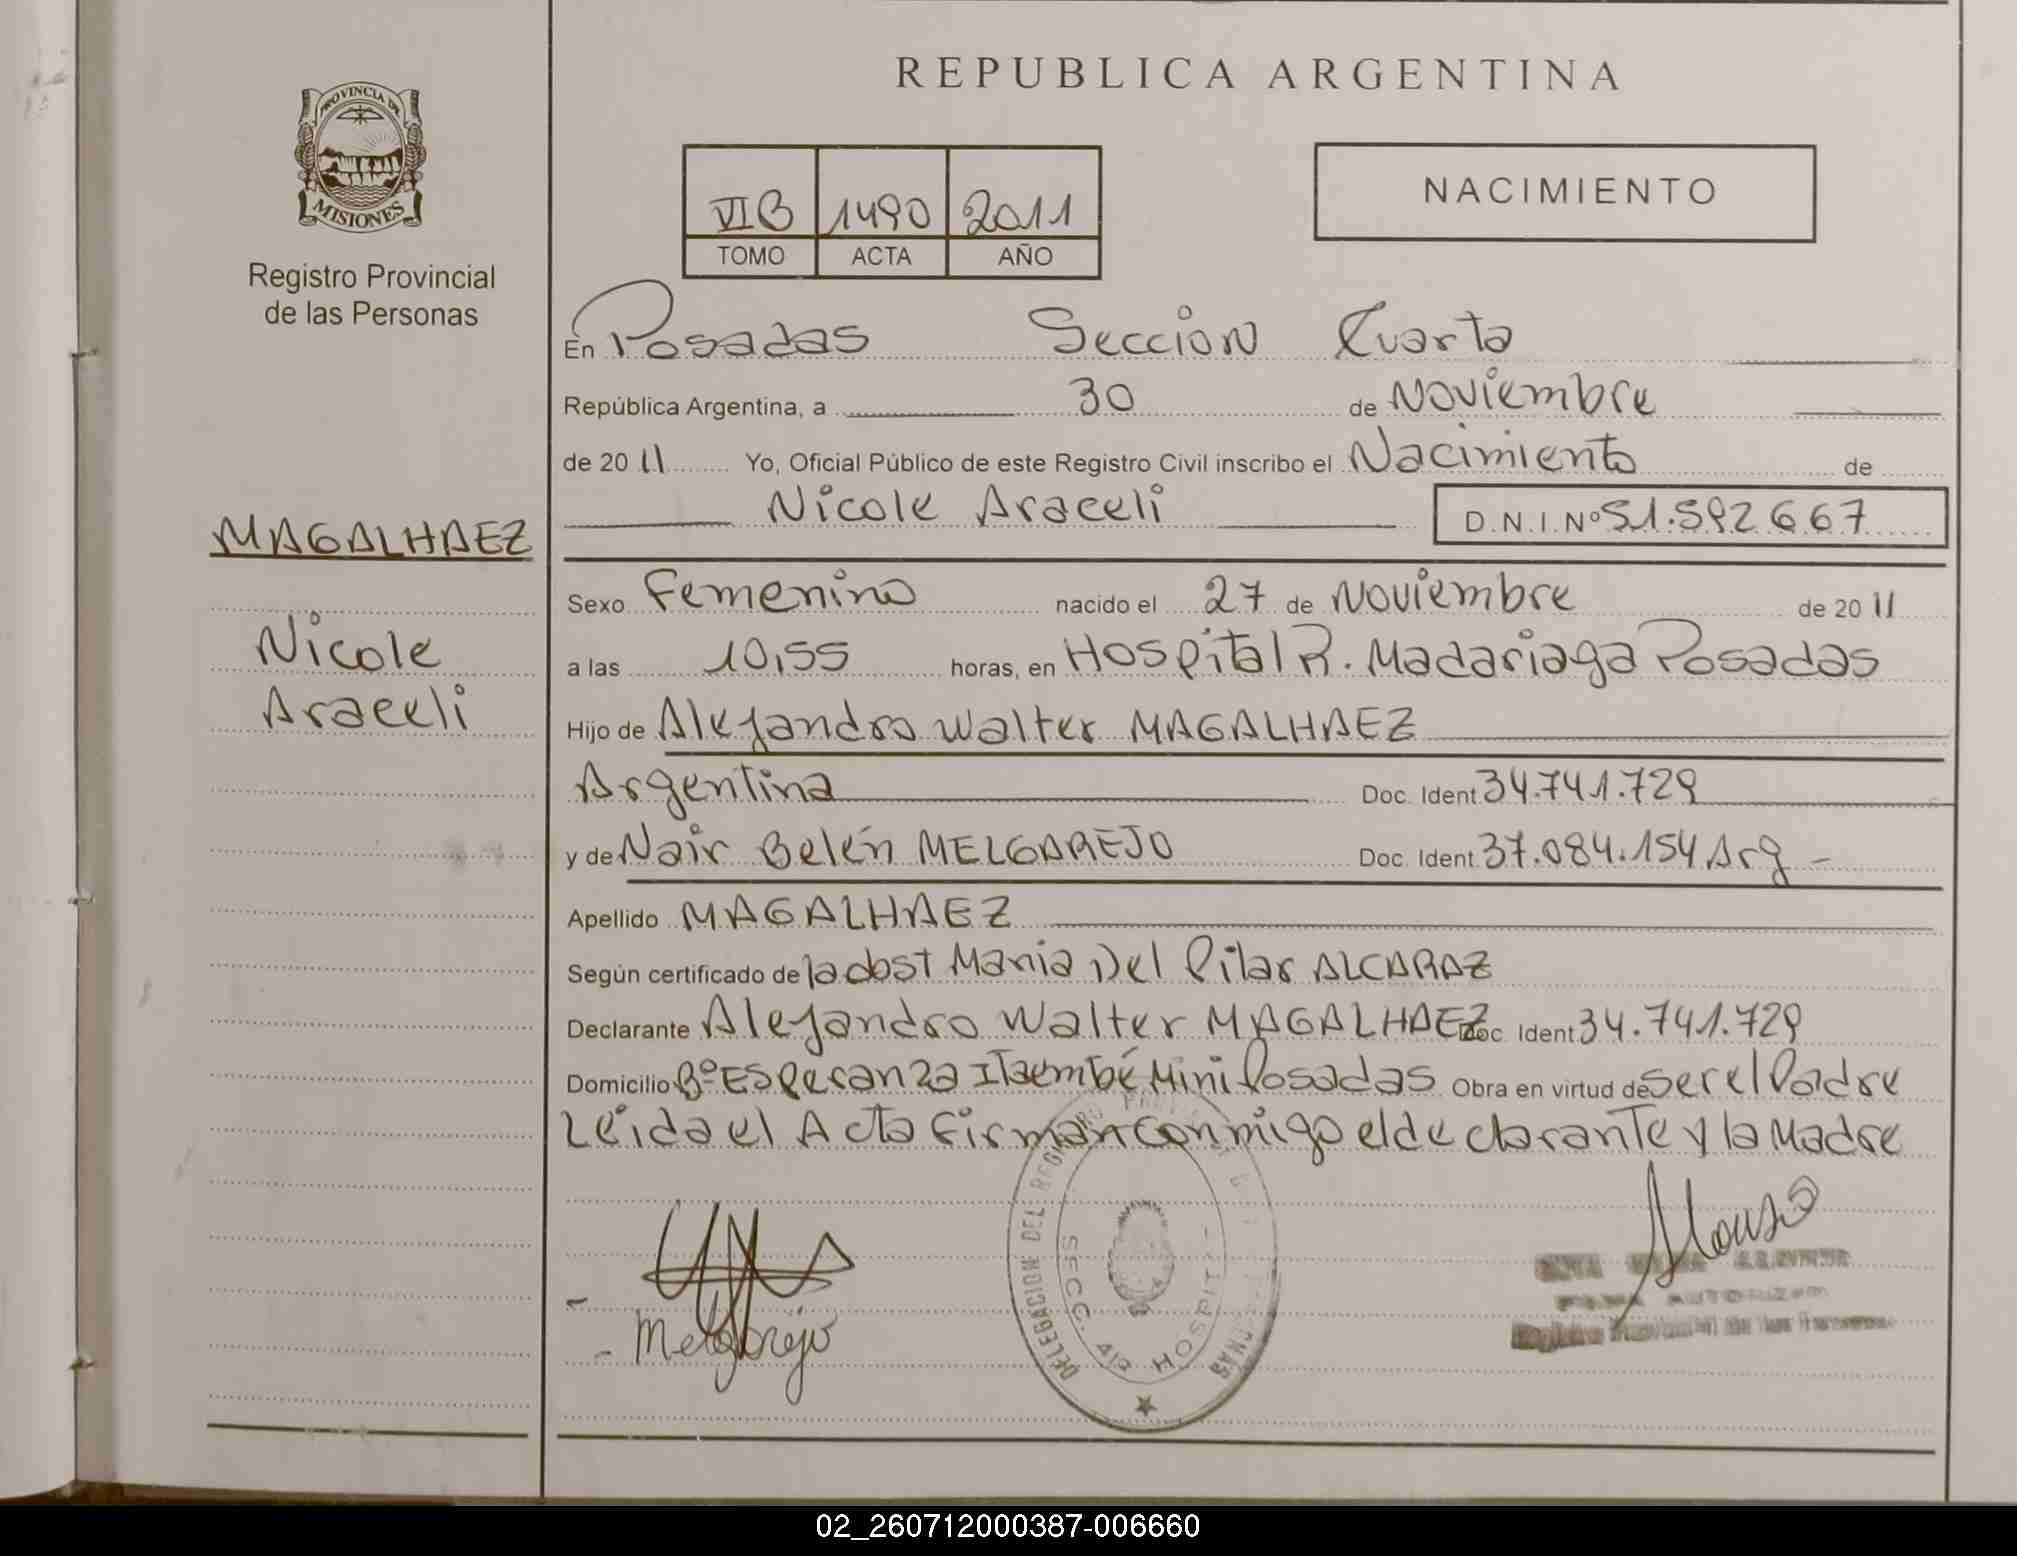 REPUBLICA ARGENTINA
PROVINCIA DE
MISIONES
Registro Provincial
de las Personas
VI B 1490 2011
TOMO ACTA AÑO
NACIMIENTO
En Posadas Seccion Cuarta
República Argentina, a 30 de Noviembre
de 20 11 Yo, Oficial Público de este Registro Civil inscribo el Nacimiento de
Nicole Araceli D.N.I. Nº 51.592667
MAGALHAEZ
Nicole
Araceli
Sexo Femenino nacido el 27 de Noviembre de 20 11
a las 10,55 horas, en Hospital R. Madariaga Posadas
Hijo de Alejandro Walter MAGALHAEZ
Argentina Doc. Ident. 34.741.729
y de Nair Belén MELGAREJO Doc. Ident. 37.084.154 Arg -
Apellido MAGALHAEZ
Según certificado de la obst Maria Del Pilar ALCARAZ
Declarante Alejandro Walter MAGALHAEZ Doc. Ident. 34.741.729
Domicilio Bº Esperanza Itaembé Mini Posadas Obra en virtud de ser el Padre
Leida el Acta firman conmigo el declarante y la Madre
Melgarejo
DELEGACION DEL REGISTRO
SECC. 4ta HOSPITAL
02_260712000387-006660